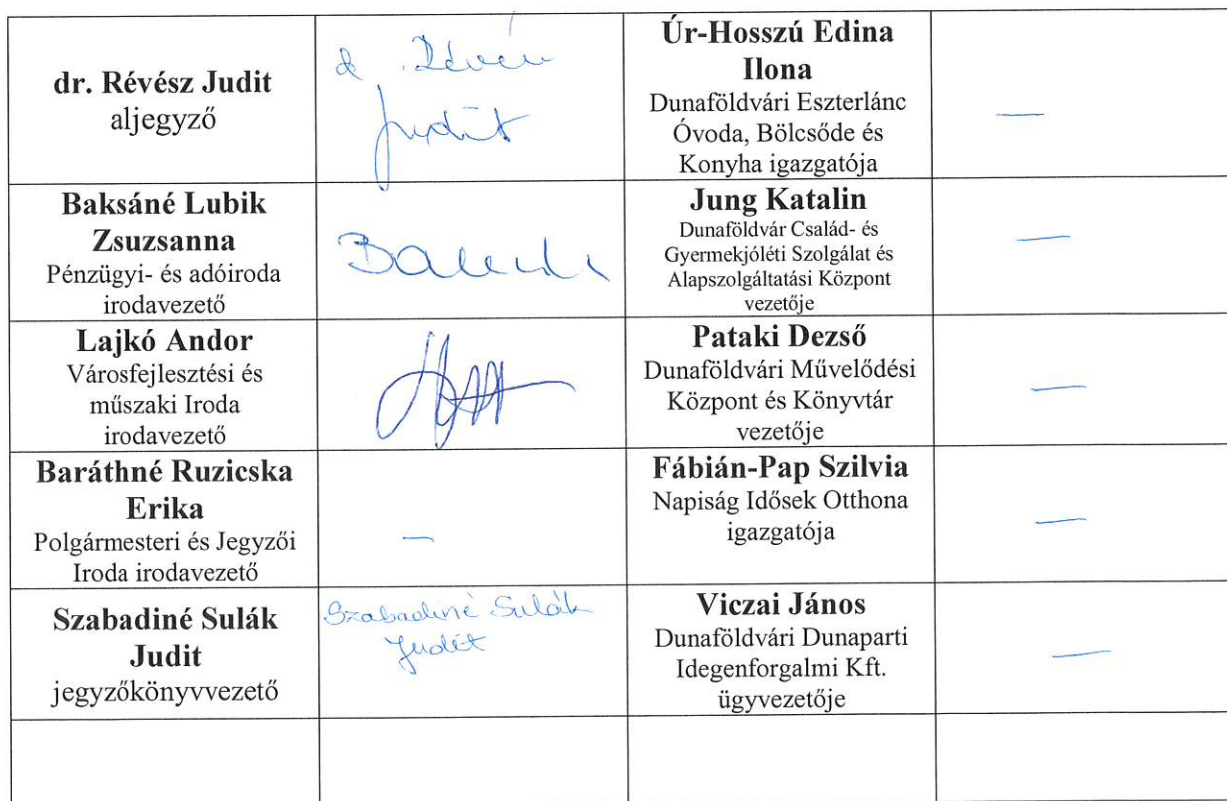 dr. Révész Judit
aljegyző
d. Révész
Judit
Úr-Hosszú Edina
Ilona
Dunaföldvári Eszterlánc
Óvoda, Bölcsőde és
Konyha igazgatója
—
Baksáné Lubik
Zsuzsanna
Pénzügyi- és adóiroda
irodavezető
Jung Katalin
Dunaföldvár Család- és
Gyermekjóléti Szolgálat és
Alapszolgáltatási Központ
vezetője
—
Lajkó Andor
Városfejlesztési és
műszaki Iroda
irodavezető
Pataki Dezső
Dunaföldvári Művelődési
Központ és Könyvtár
vezetője
—
Baráthné Ruzicska
Erika
Polgármesteri és Jegyzői
Iroda irodavezető
—
Fábián-Pap Szilvia
Napiság Idősek Otthona
igazgatója
—
Szabadiné Sulák
Judit
jegyzőkönyvvezető
Szabadiné Sulák
Judit
Viczai János
Dunaföldvári Dunaparti
Idegenforgalmi Kft.
ügyvezetője
—